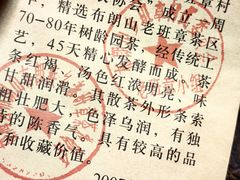 年，精选布朗山老班章茶区
70-80年树龄园茶，经传统工
艺，45天精心发酵而成。茶
条红褐，汤色红浓明亮，味
甘甜润滑。具散茶外形条索
粗壮肥大，色泽乌润，有独
的陈香气。具有较高的品
和收藏价值。